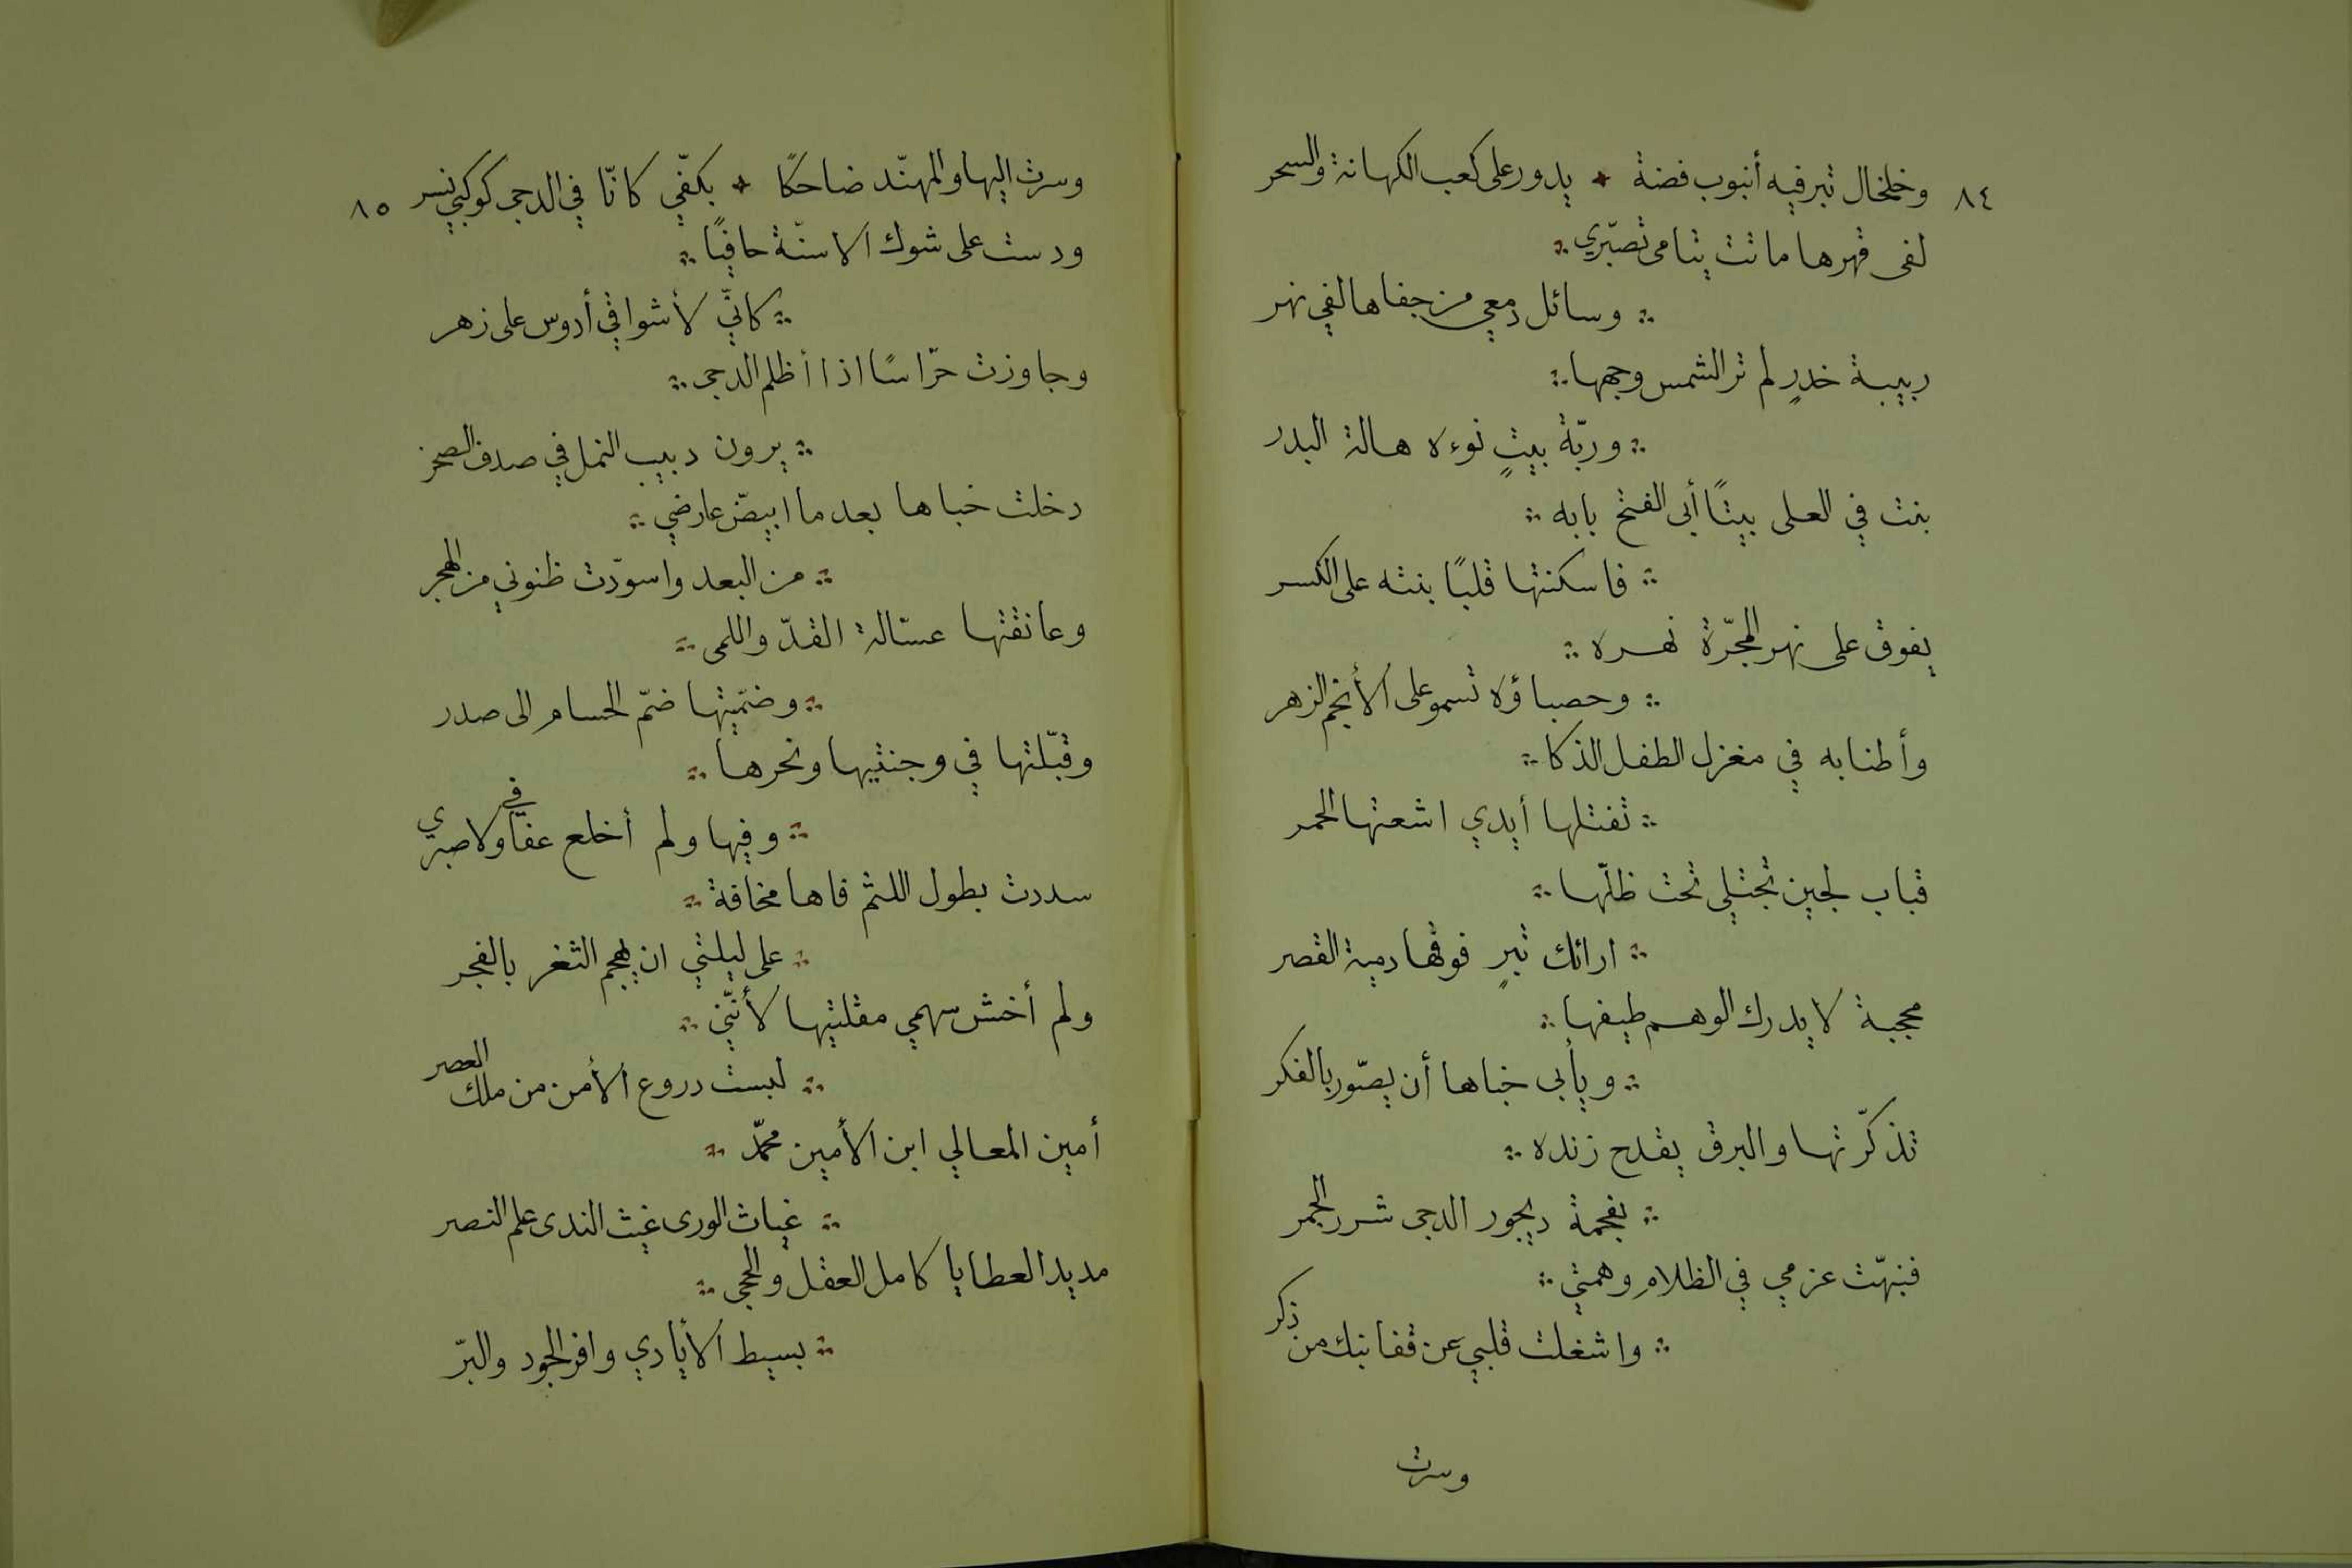 ٨٤
وخلخال تبر فيه أنبوب فضة * يدور على كعب الكهانة والسحر
لفى قهرها ماتت يتامى تصبّري
وسائل دمعي من جفاها لفي نهر
ربيبة خدرٍ لم تر الشمس وجهها
وربّة بيتٍ نوءه هالة البدر
بنت في العلى بيتًا أبى الفتح بابه
فاسكنتها قلبًا بنته على الكسر
يفوق على نهر المجرّة نهره
وحصباؤه تسمو على الأنجم الزهر
وأطنابه في مغزل الطفل الذكا
تفتلها أيدي اشعتها الحمر
قباب لجين تجتلى تحت ظلّها
ارائك تبرٍ فوقها دمية القصر
محجبة لا يدرك الوهم طيفها
ويأبى خباها أن يصّور بالفكر
تذكّرتها والبرق يقدح زنده
بفحمة ديجور الدجى شرر الجمر
فنبهّت عزمي في الظلامِ وهمتي
واشغلت قلبي عن قفا نبك من ذكر
وسرت
٨٥
وسرت اليها والمهنّد ضاحكًا * بكفّي كانّا في الدجى كوكبي نسر
ودست على شوك الاسنّة حافيًا
كانيّ لأشواقي أدوس على زهر
وجاوزت حرّاسًا اذا أظلم الدجى
يرون دبيب النمل في صدف الصخر
دخلت خباها بعد ما ابيضّ عارضي
من البعد واسودّت ظنوني من الهجر
وعانقتها عسّالة القدّ واللمى
وضمّيتها ضمّ الحسامِ الى صدر
وقبّلتها في وجنتيها ونحرها
وفيها ولم أخلع عفافي ولا صبري
سددت بطول اللثم فاها مخافة
على ليلتي ان يهجم الثغر بالفجر
ولم أخش سهمي مقلتيها لأننّي
لبست دروع الأمن من ملك العصر
أمين المعالي ابن الأمين محمّد
غياث الورى غيث الندى علم النصر
مديد العطايا كامل العقل والحجى
بسيط الأيادي وافر الجود والبرّ